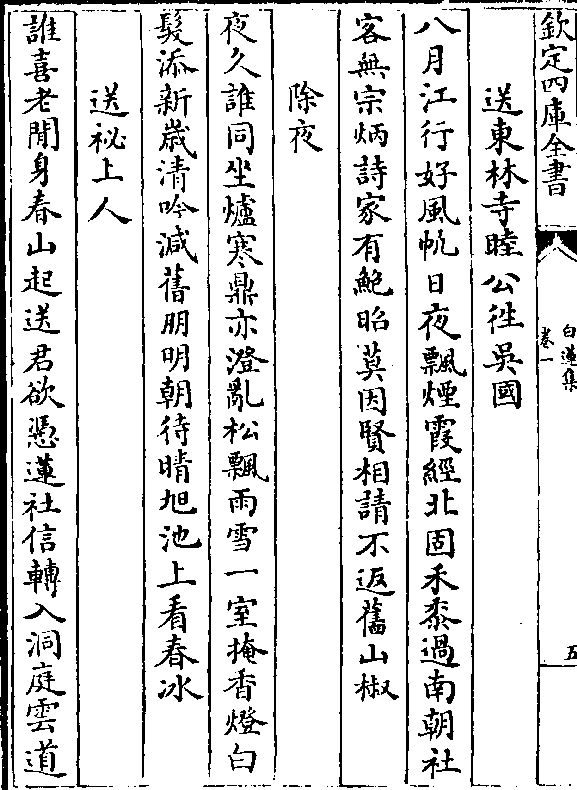 欽定四庫全書
白蓮集
卷一
五
送東林寺睦公徃吳國
八月江行好風帆日夜飄煙霞經北固禾黍過南朝社
客無宗炳詩家有鮑昭莫因賢相請不返舊山椒
除夜
夜久誰同坐爐寒鼎亦澄亂松飄雨雪一室掩香燈白
髮添新歲清吟減舊朋明朝待晴旭池上看春冰
送祕上人
誰喜老閒身春山起送君欲憑蓮社信轉入洞庭雲道